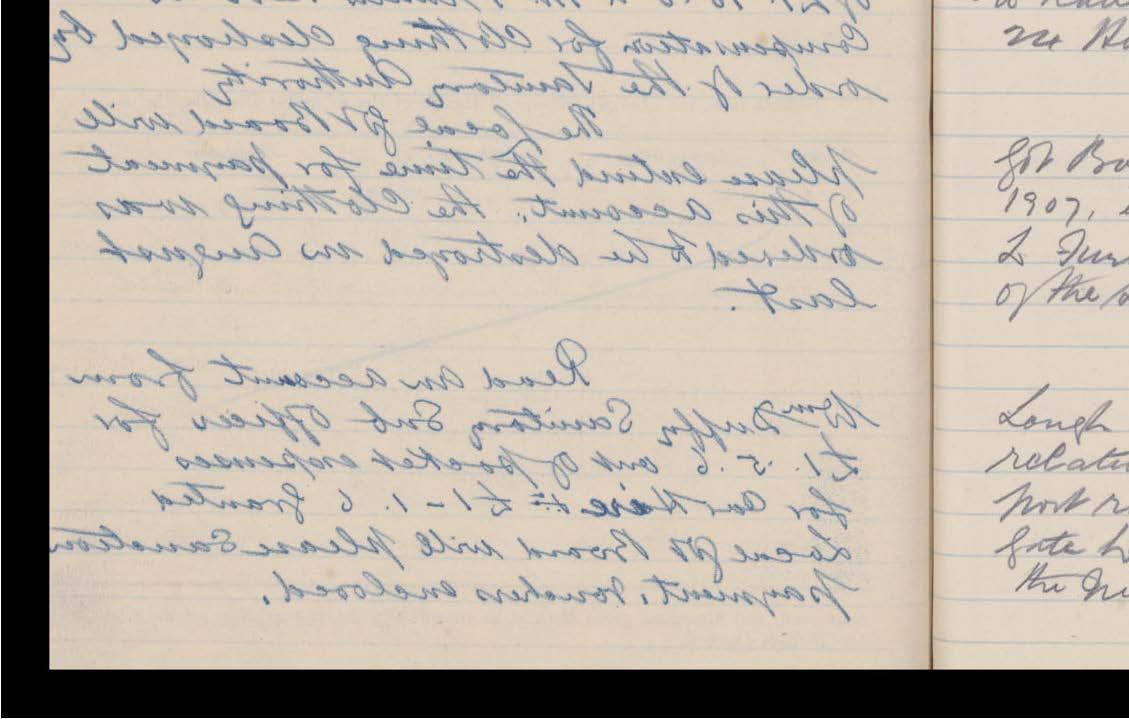 Compensation for Clothing destroyed by
order of the Sanitary Authority
The Local Gt Board will
please extend the time for payment
of this account. the Clothing was
ordered to be destroyed in August
last.
Read an account from
Wm Duffy Sanitary Sub Officer for
£1. 5. 6 out of pocket expenses
for Car Hire = £1 - 1. 6 granted
Local Gt Board will please Sanction
payment. Vouchers enclosed.
1907,
of the
Lough
relati
post
gate
the